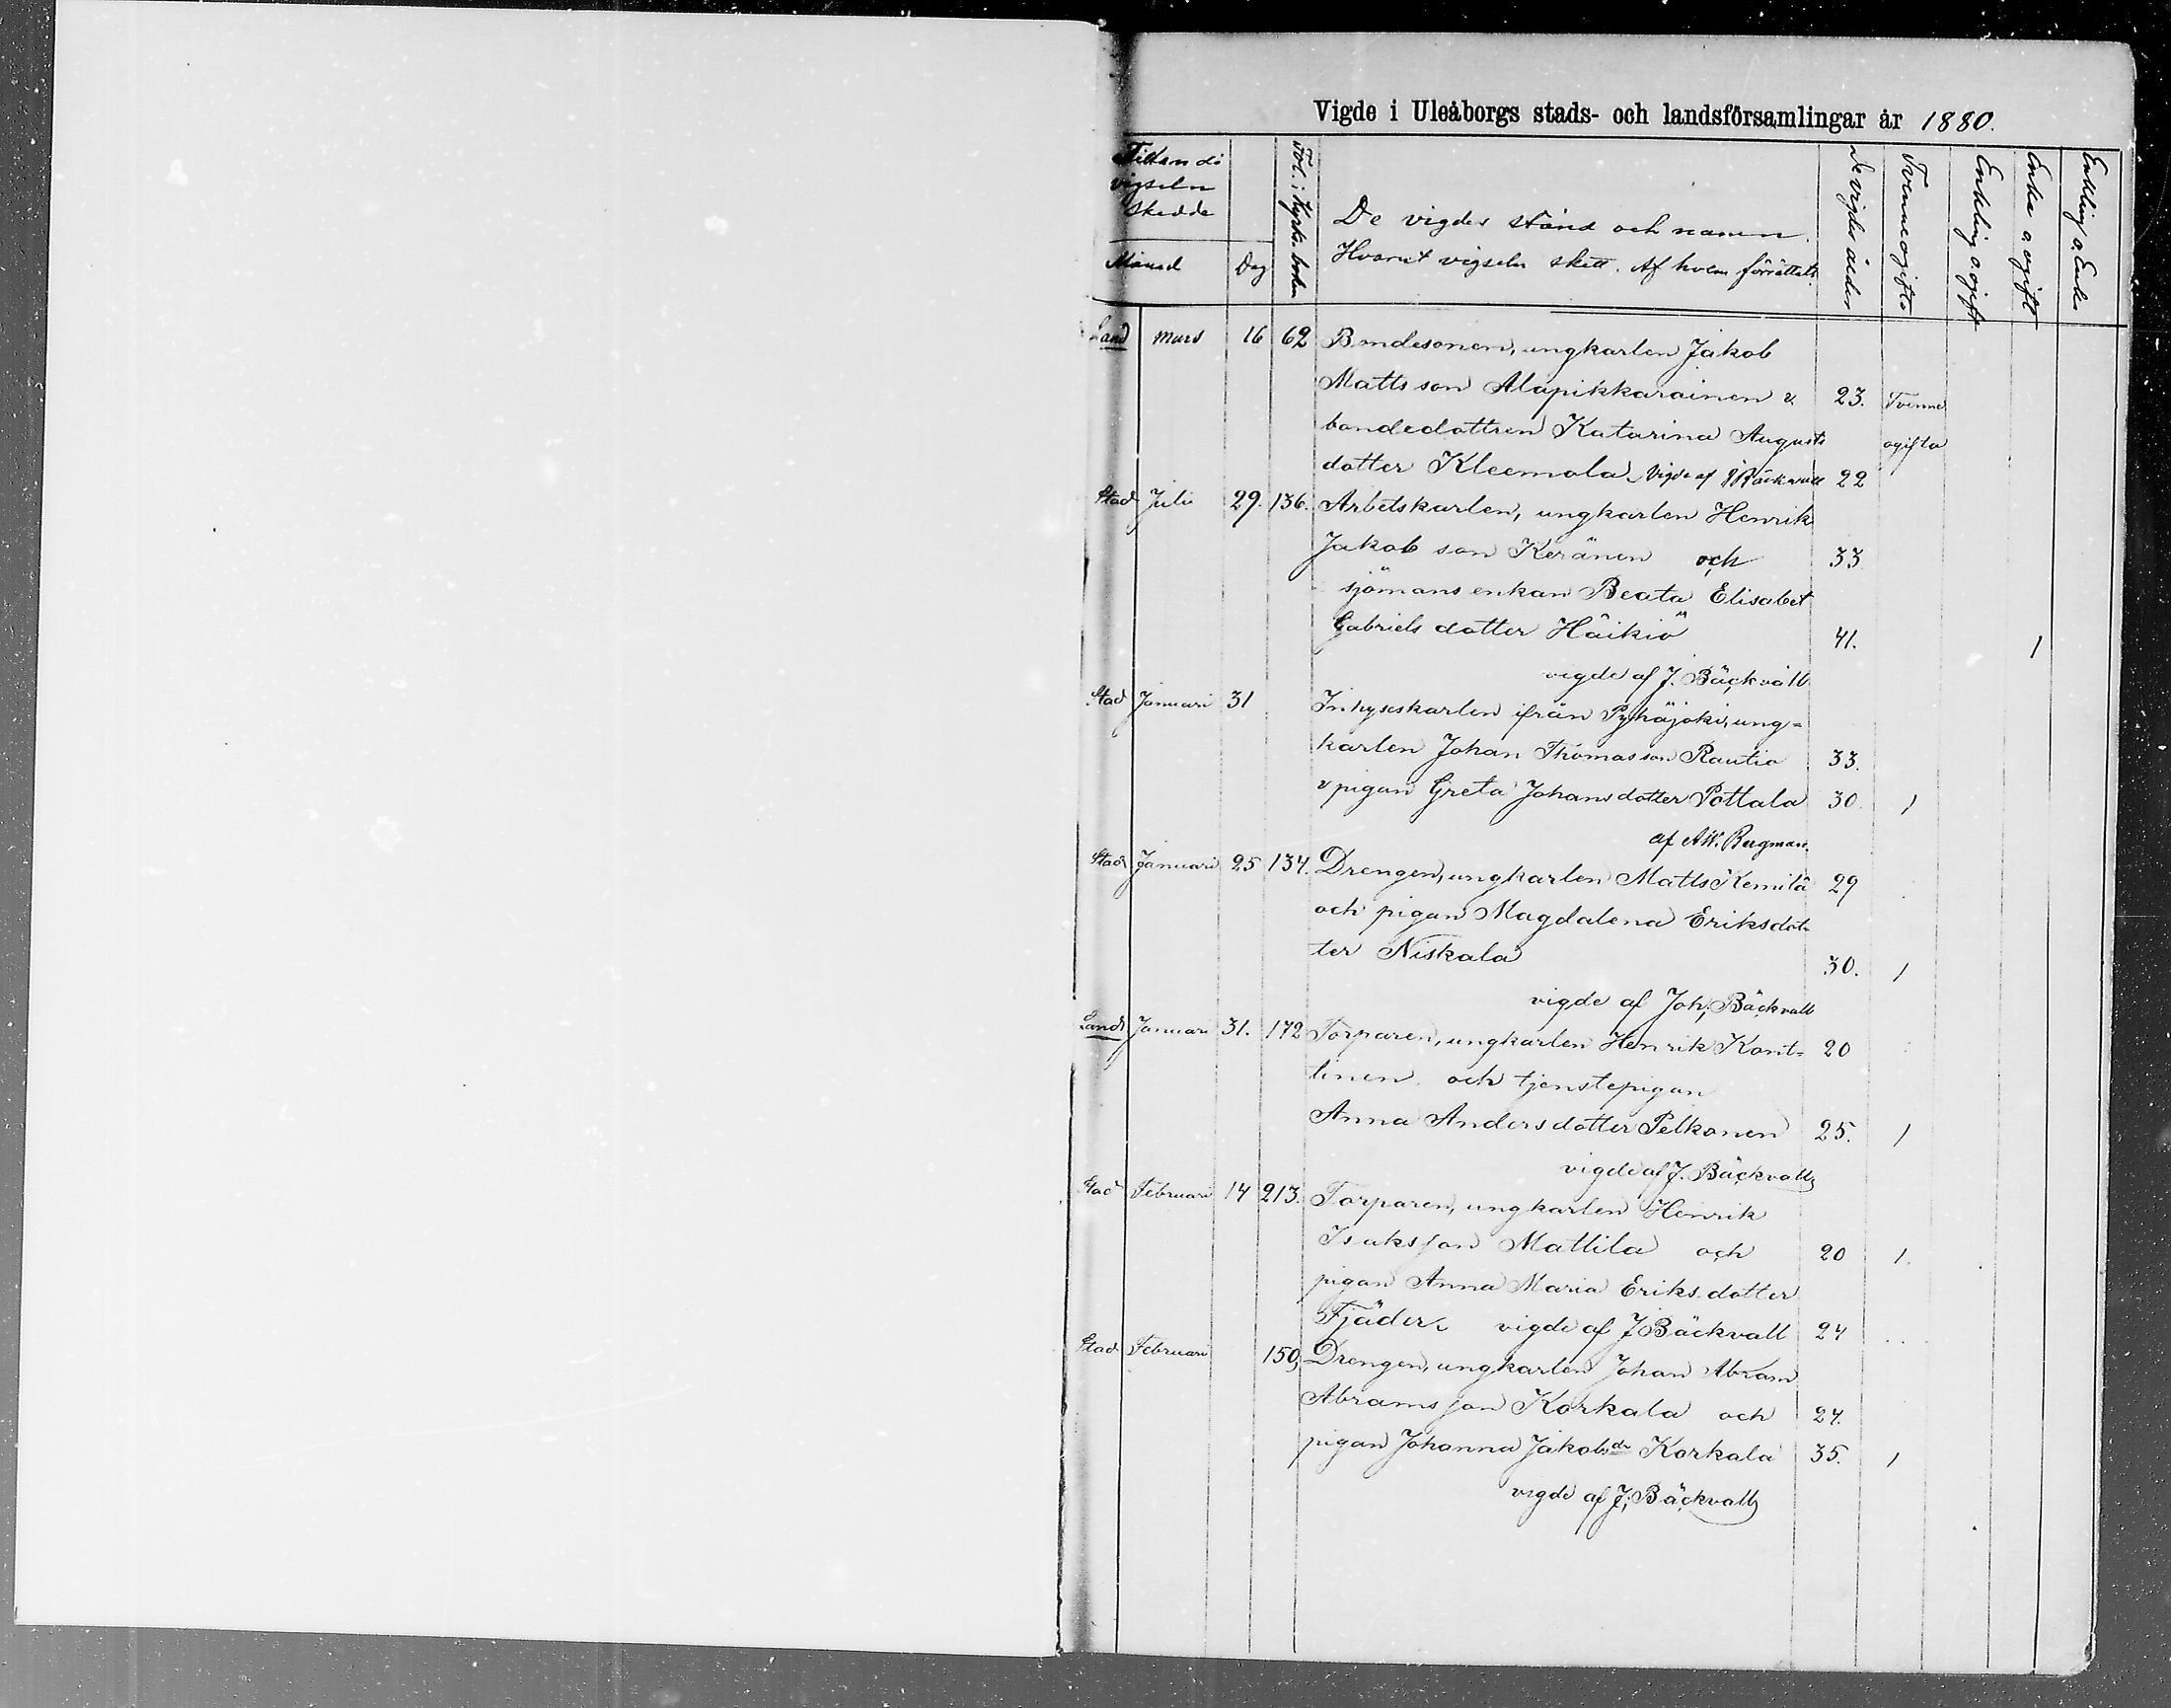 Vigde i Uleåborgs stads- och landsförsamlingar år 1880.
Tiden då
vigseln
skedde
Månad Dag
Fol. i Kyrk. boken
De vigdes stånd och namn.
Hvarest vigseln skett. Af hvem förrättadt.
De vigdes ålder
Tvenne ogifta
Enkling o. ogift
Enka o. ogift
Enkling o. Enka
Land mars 16 62 Bondesonen, ungkarlen Jakob
Matts son Alapikkarainen o. 23. Tvenne
bondedottren Katarina Augusts ogifta
dotter Kleemola. Vigde af J Bäckvall 22
Stad Juli 29. 136. Arbetskarlen, ungkarlen Henrik
Jakob son Keränen och 33
sjömans enkan Beata Elisabet
Gabriels dotter Häikiö 41. 1
vigde af J. Bäckvall
Stad Januari 31 Inhyseskarlen ifrån Pyhäjoki, ung=
karlen Johan Thomas son Rautio 33.
o pigan Greta Johans dotter Pottala 30. 1
af AW. Bergman.
Stad Januari 25 134. Drengen, ungkarlen Matts Kemilä 29
och pigan Magdalena Eriksdot-
ter Niskala 30. 1
vigde af Joh; Bäckvall
Land Januari 31. 172 Torparen, ungkarlen Henrik Kont- 20
tinen och tjenstepigan
Anna Anders dotter Pelkonen 25. 1
vigde af J. Bäckvall
Stad Februari 14 213. Torparen, ungkarlen Henrik
Isaksson Mattila och 20 1.
pigan Anna Maria Eriks dotter
Fjäder. vigde af J Bäckvall 24
Stad Februari 150, Drengen, ungkarlen Johan Abram
Abrams son Korkala och 24.
pigan Johanna Jakobsdr Korkala 35. 1
vigde af J; Bäckvall